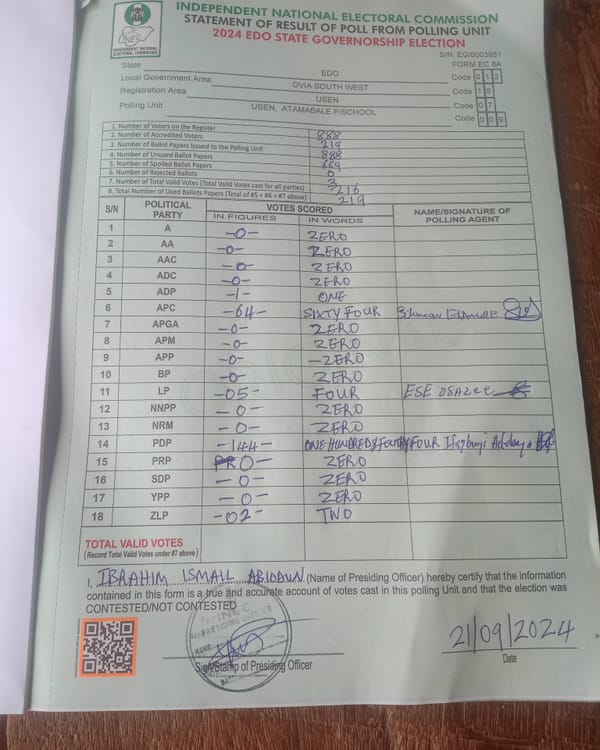 INDEPENDENT NATIONAL ELECTORAL COMMISSION
STATEMENT OF RESULT OF POLL FROM POLLING UNIT
2024 EDO STATE GOVERNORSHIP ELECTION
INEC
INDEPENDENT NATIONAL
ELECTORAL COMMISSION
S/N. EG/0003951
FORM EC 8A
State EDO Code 0 1 2
Local Government Area OVIA SOUTH WEST Code 1 5
Registration Area USEN Code 0 7
Polling Unit USEN, ATAMABALE P/SCHOOL Code 0 0 9
1. Number of Voters on the Register 888
2. Number of Accredited Voters 219
3. Number of Ballot Papers Issued to the Polling Unit 888
4. Number of Unused Ballot Papers 669
5. Number of Spoiled Ballot Papers 0
6. Number of Rejected Ballots 3
7. Number of Total Valid Votes (Total Valid Votes cast for all parties) 216
8. Total Number of Used Ballots Papers (Total of #5 + #6 + #7 above) 219
S/N POLITICAL PARTY VOTES SCORED NAME/SIGNATURE OF POLLING AGENT
IN FIGURES IN WORDS
1 A -0- ZERO
2 AA -0- ZERO
3 AAC -0- ZERO
4 ADC -0- ZERO
5 ADP -1- ONE
6 APC -64- SIXTY FOUR
7 APGA -0- ZERO
8 APM -0- ZERO
9 APP -0- -ZERO
10 BP -0- ZERO
11 LP -05- FOUR ESE
12 NNPP -0- ZERO
13 NRM -0- ZERO
14 PDP -144- ONE HUNDRED & FOUR
15 PRP 0- ZERO
16 SDP -0- ZERO
17 YPP -0- ZERO
18 ZLP -02- TWO
TOTAL VALID VOTES
(Record Total Valid Votes under #7 above)
I, IBRAHIM ISMAIL ABIODUN (Name of Presiding Officer) hereby certify that the information
contained in this form is a true and accurate account of votes cast in this polling Unit and that the election was
CONTESTED/NOT CONTESTED
INEC
PRESIDING OFFICER
NAME
Sign/Stamp of Presiding Officer
21/09/2024
Date